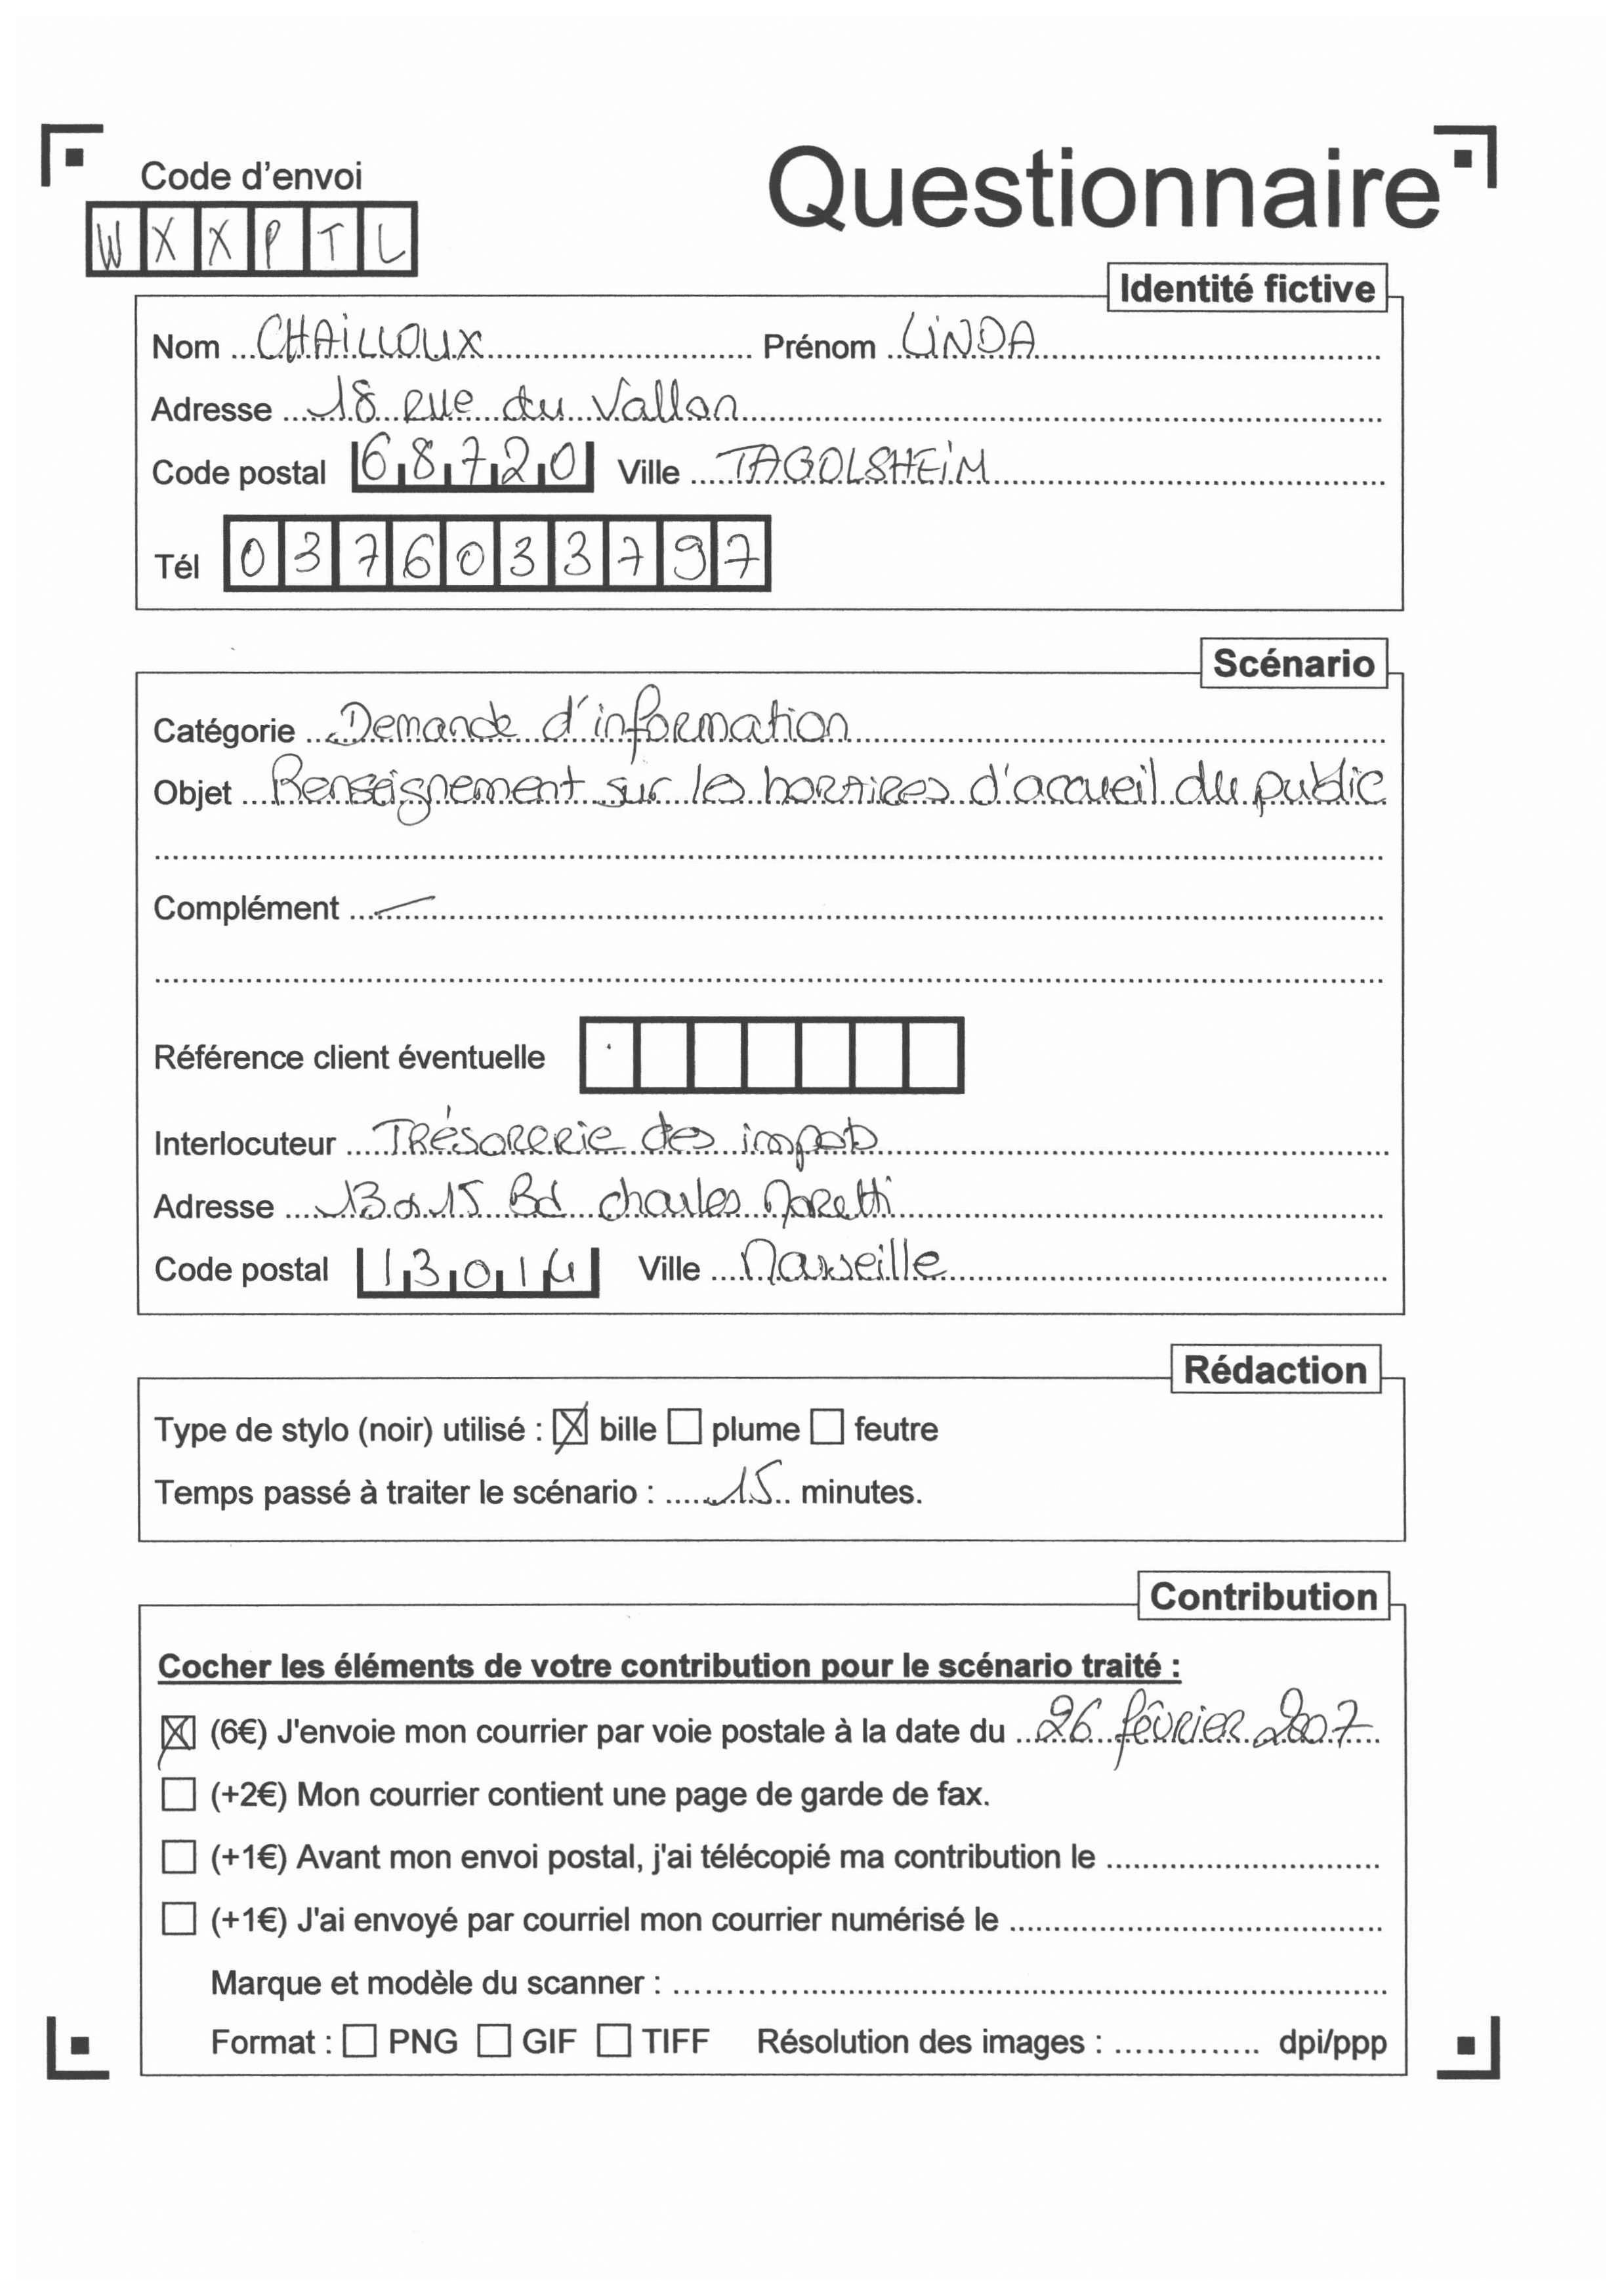 Code d'envoi
Questionnaire
W X X P T L
Identité fictive
Nom CHAILLOUX Prénom LINDA
Adresse 18 rue du Vallon
Code postal 68720 Ville TAGOLSHEIM
Tél 0376033797
Scénario
Catégorie Demande d'information
Objet Renseignement sur les horaires d'accueil du public
Complément
Référence client éventuelle
Interlocuteur Trésorerie des impots
Adresse 13 à 15 Bd charles Moretti
Code postal 13014 Ville Marseille
Rédaction
Type de stylo (noir) utilisé : bille plume feutre
Temps passé à traiter le scénario : 15 minutes.
Contribution
Cocher les éléments de votre contribution pour le scénario traité :
(6€) J'envoie mon courrier par voie postale à la date du 26 février 2007
(+2€) Mon courrier contient une page de garde de fax.
(+1€) Avant mon envoi postal, j'ai télécopié ma contribution le
(+1€) J'ai envoyé par courriel mon courrier numérisé le
Marque et modèle du scanner :
Format : PNG GIF TIFF Résolution des images : dpi/ppp